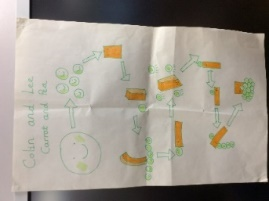 Colin and Lee
Carrot and Pea